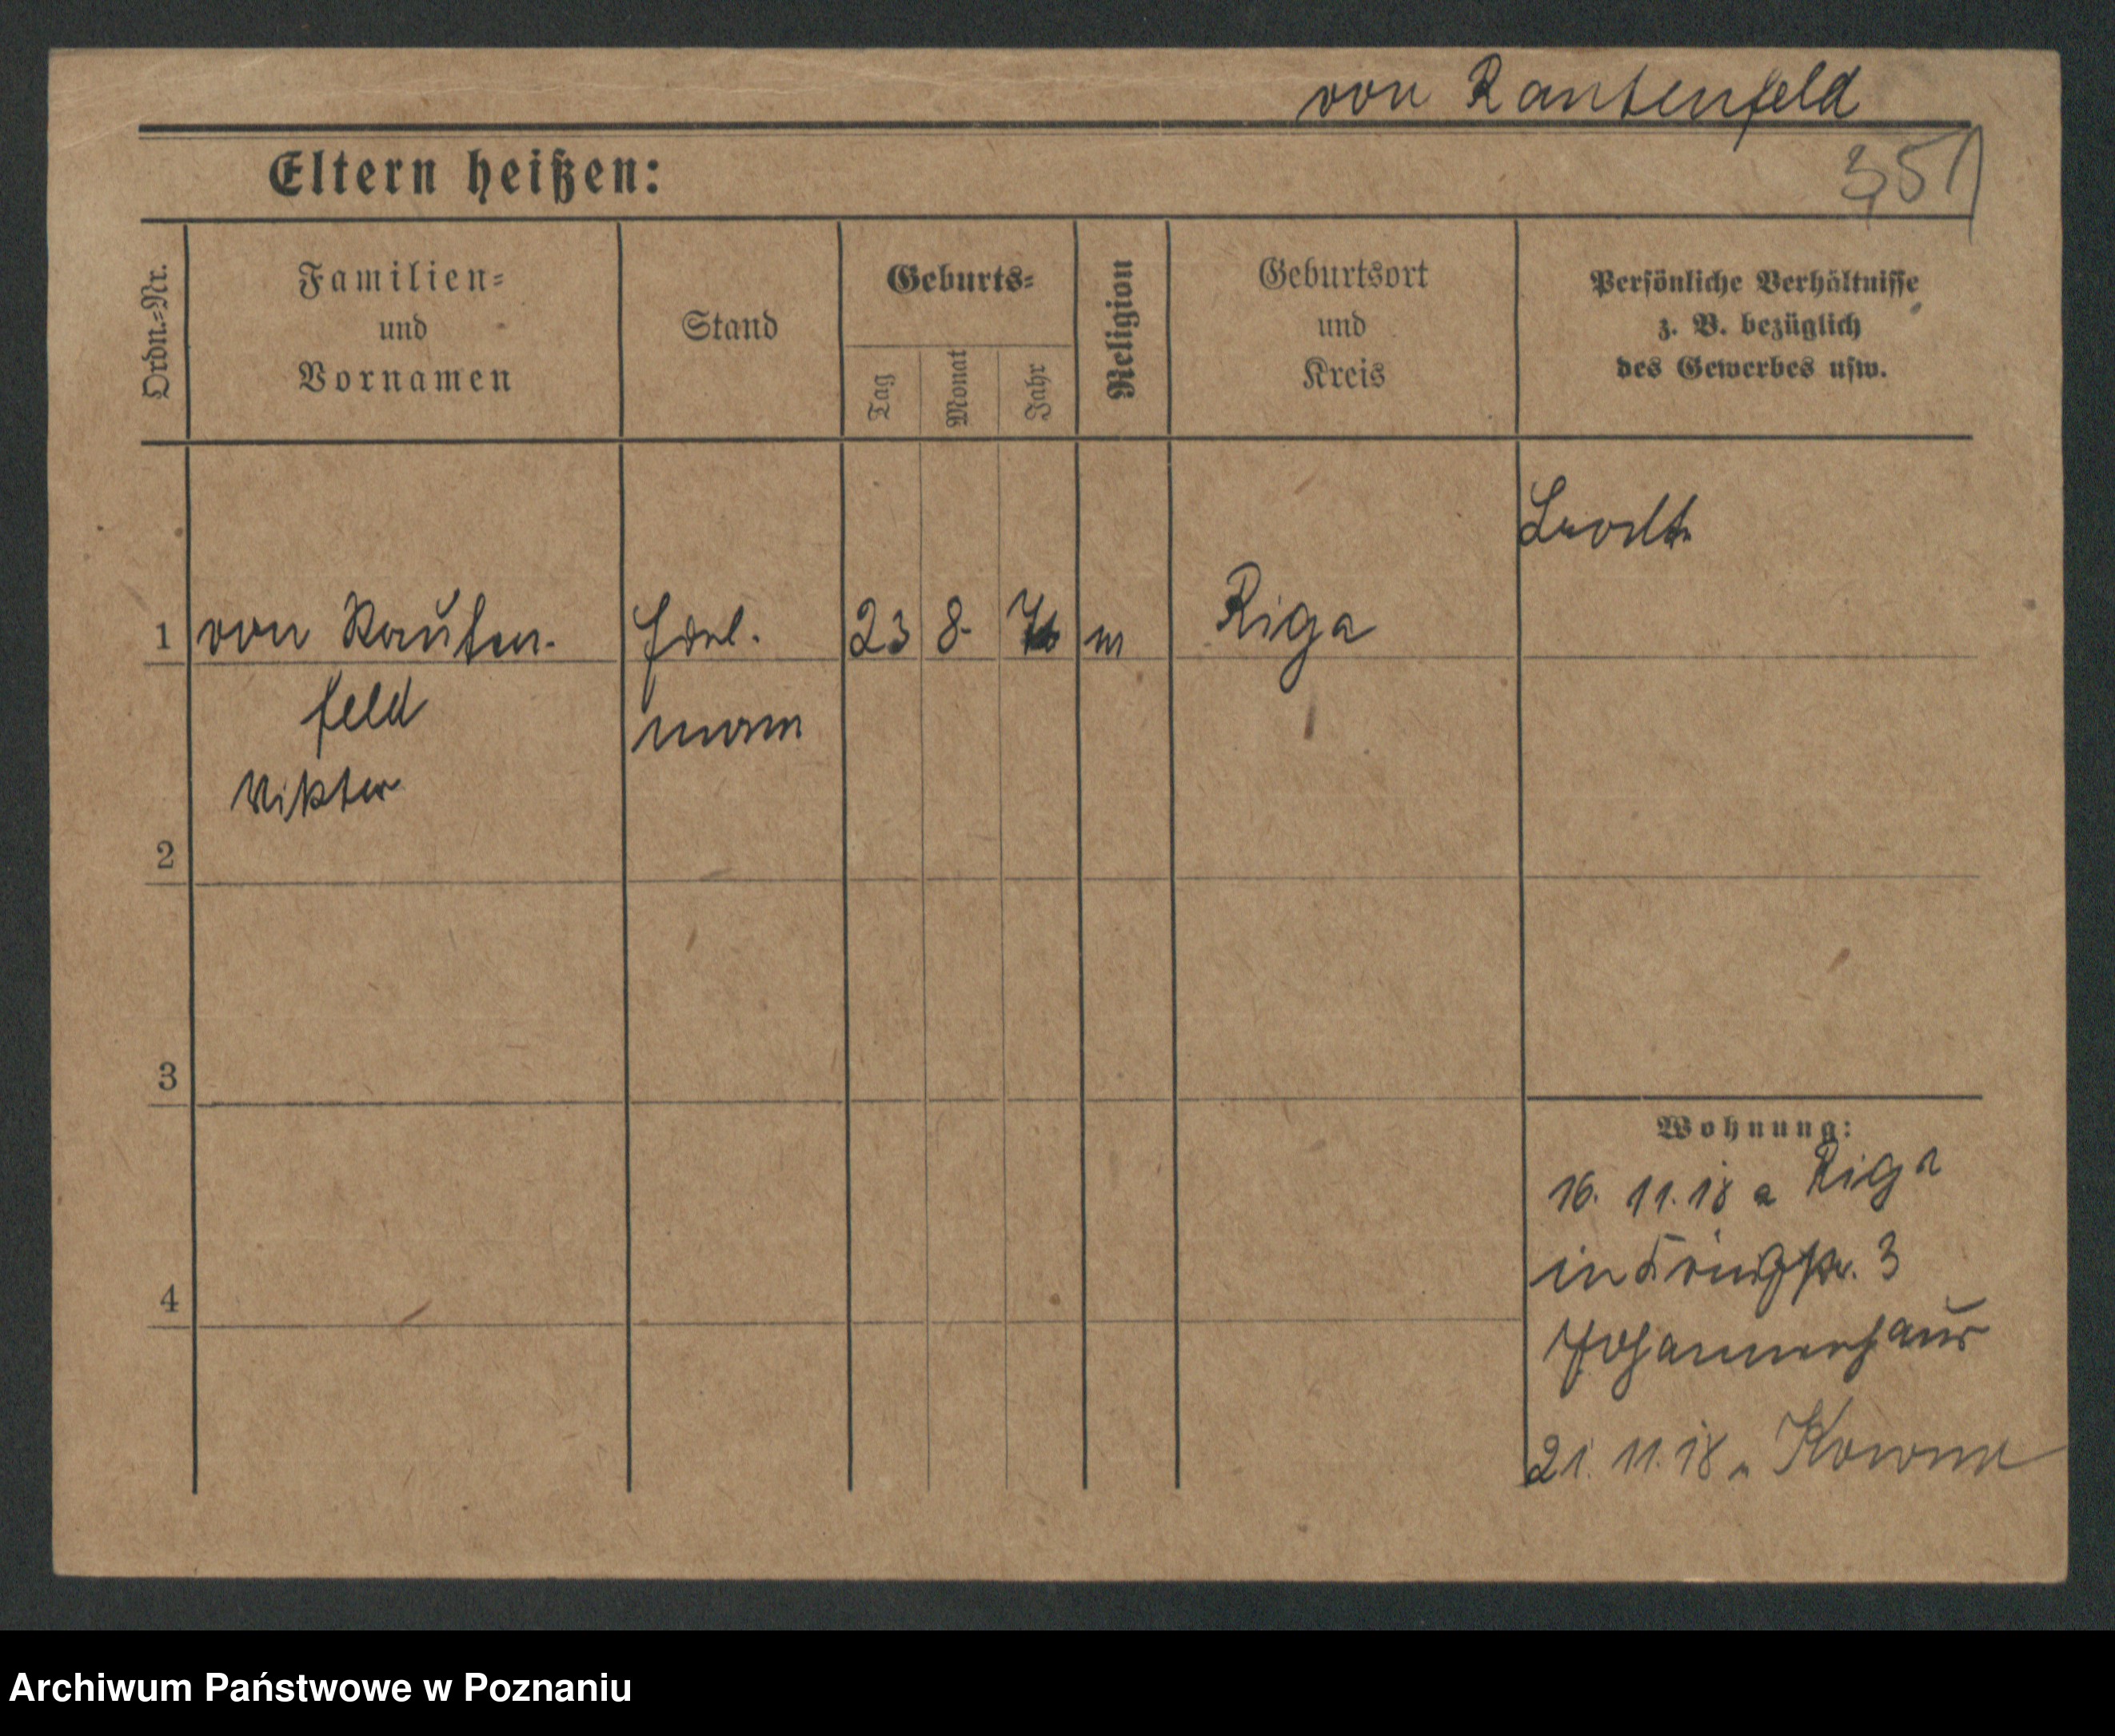 von Rautenfeld
Eltern heißen:
351
Ordn.=Nr.
Familien=
und
Vornamen
Stand
Geburts=
Tag
Monat
Jahr
Religion
Geburtsort
und
Kreis
Persönliche Verhältnisse
z. B. bezüglich
des Gewerbes usw.
1 von Rauten- Edel- 23 8. m Riga
feld mann
Viktor
2
3
4
Wohnung:
16. 11. 18 a Riga
in Königstr. 3
Johannerhaus
21. 11. 18 n Kowno
Archiwum Państwowe w Poznaniu